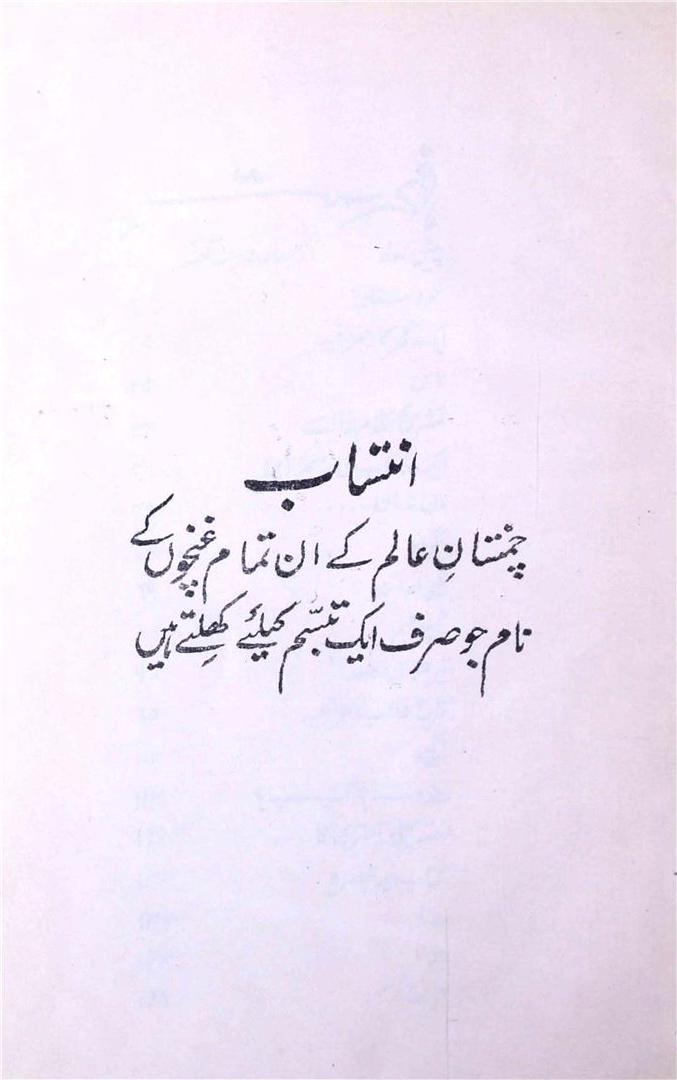 انتساب
چمنستانِ عالم کے ان تمام غنچوں کے
نام جو صرف ایک تبسّم کیلئے کھِلتے ہیں